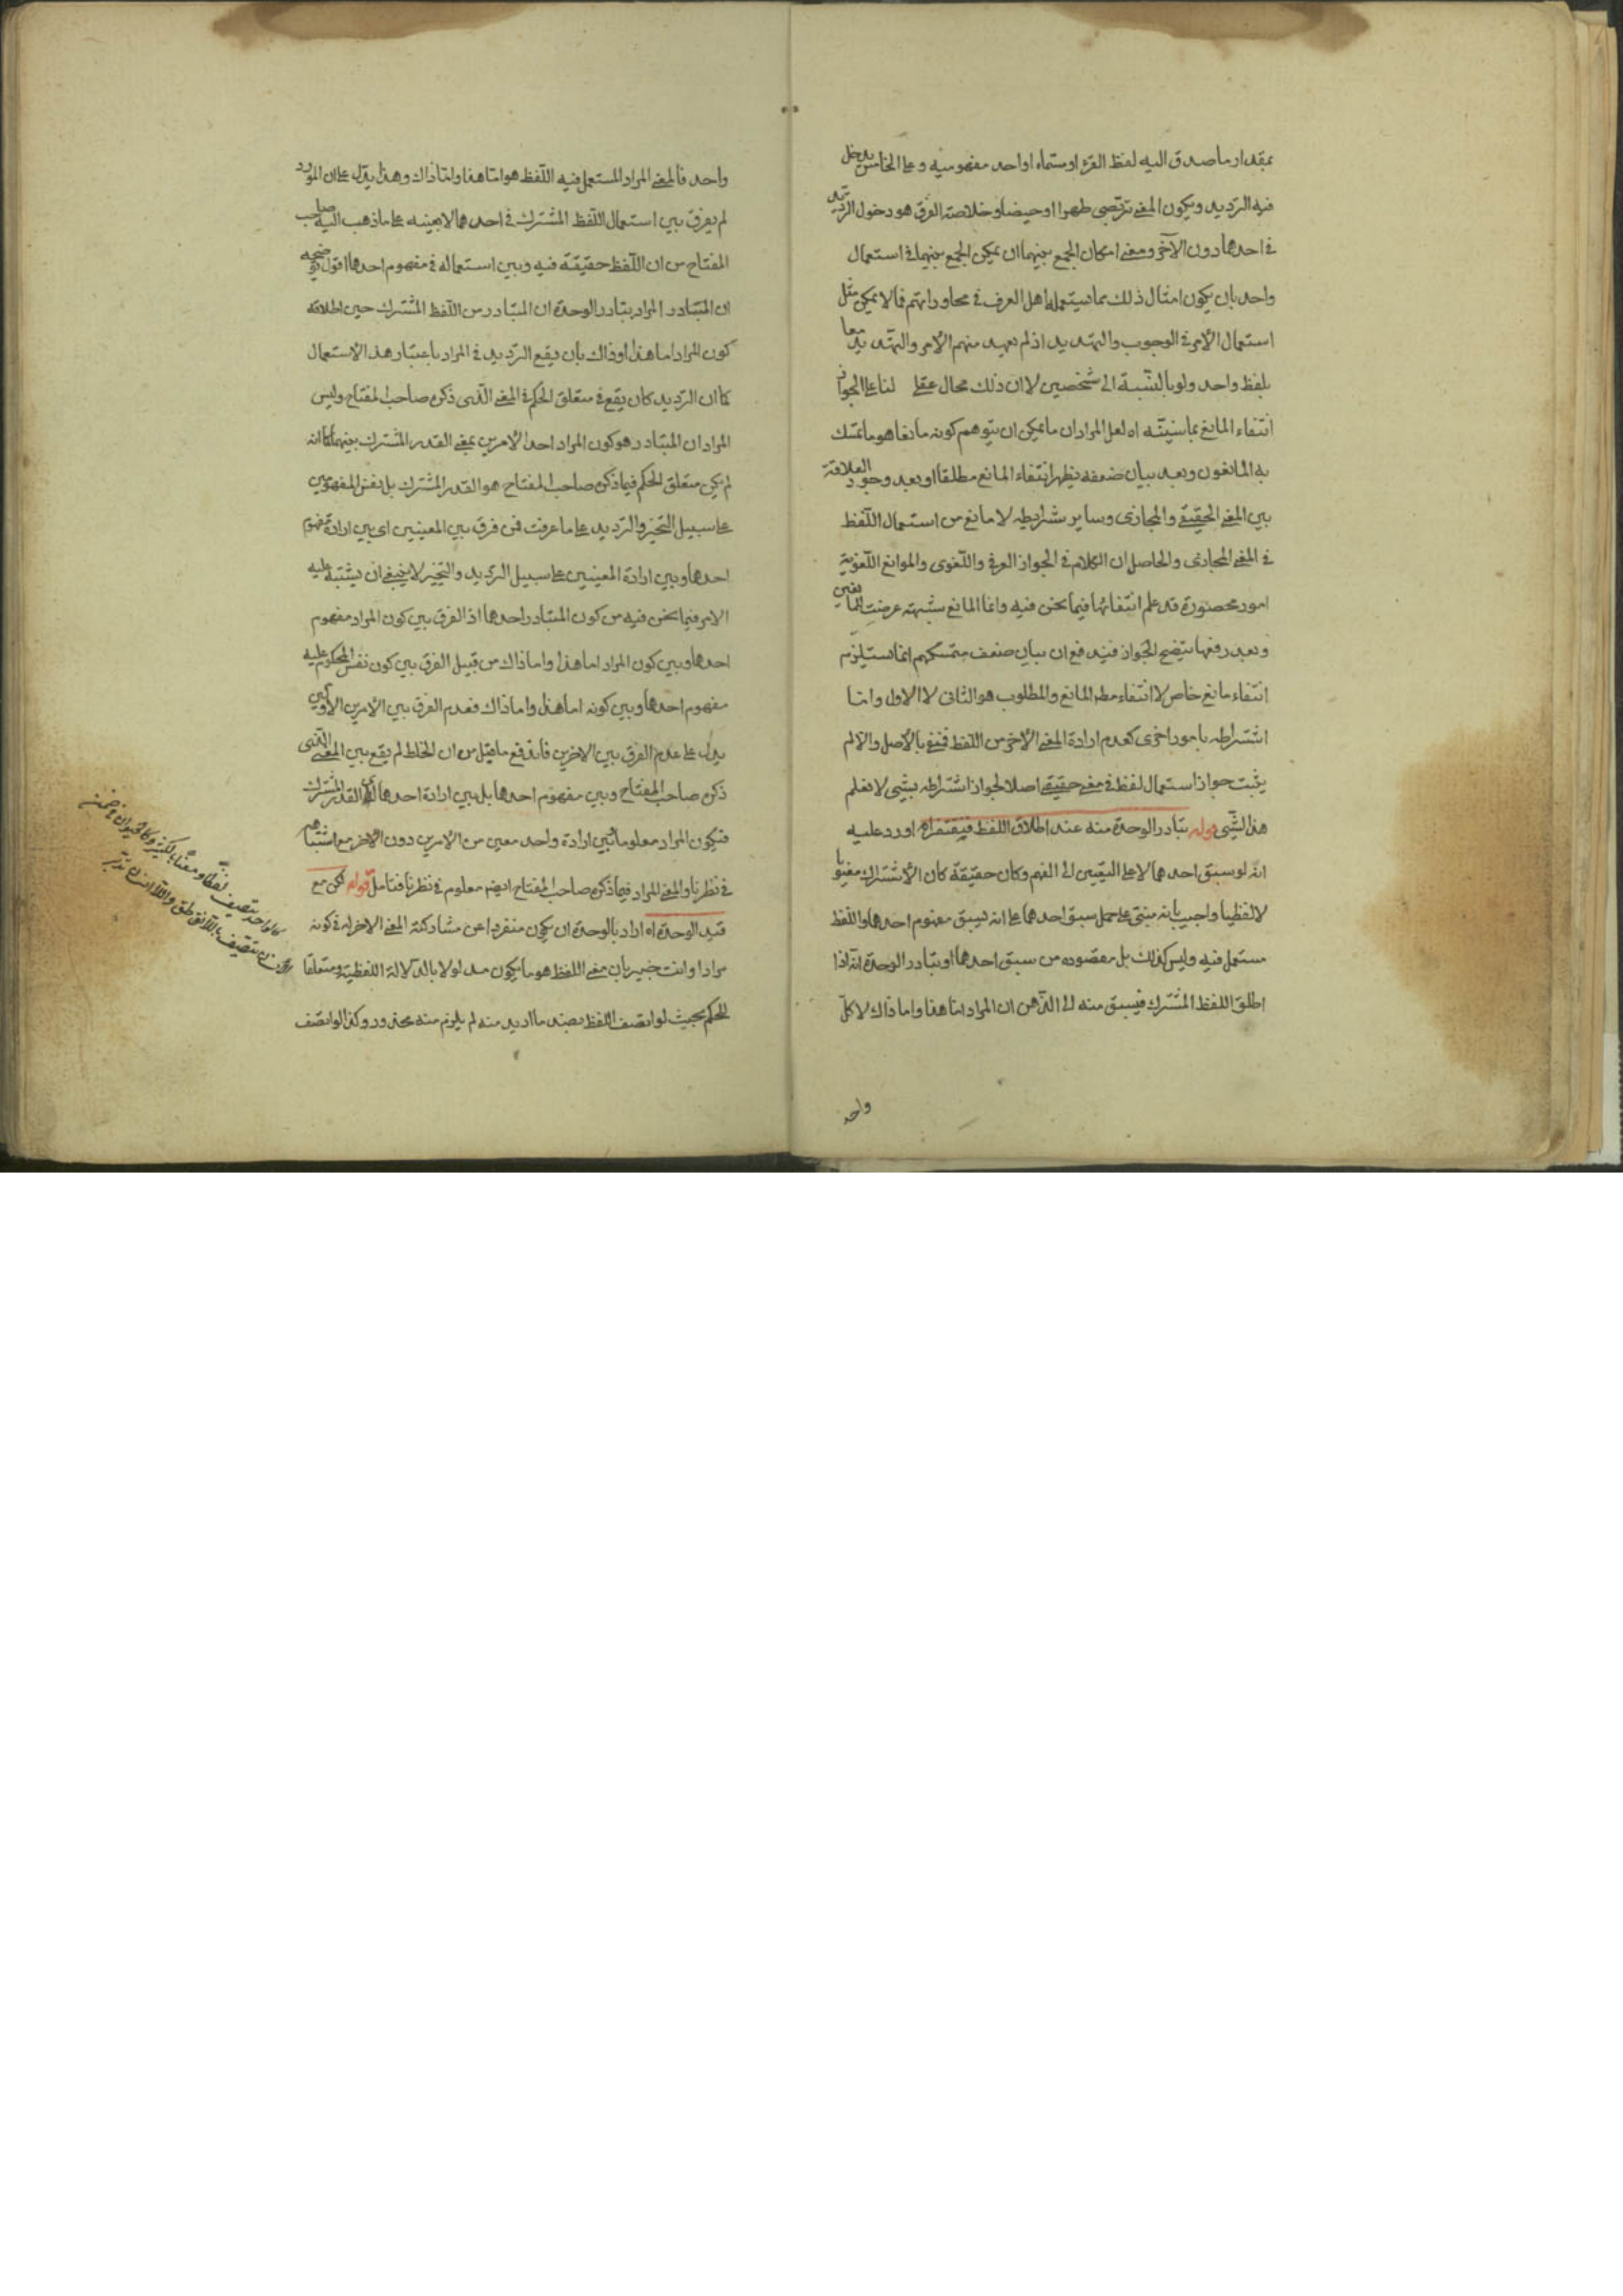 بمقدار ما صدق اليه لفظ القرء او مسماه او احد مفهوميه وعلى الخامس يدخل
فيه الترديد ويكون المعنى تربصى طهرا او حيضا وخلاصة الفرق هو دخول الترديد
فى احدهما دون الآخر ومعنى امكان الجمع بينهما ان يمكن الجمع بينهما فى استعمال
واحد بان يكون امثال ذلك مما يستعمله اهل العرف فى محاوراتهم فما لا يمكن مثل
استعمال الأمر فى الوجوب والتهديد اذ لم يعهد منهم الأمر والتهديد معا
بلفظ واحد ولو بالنسبة الى شخصين لا ان ذلك محال عقلى لنا على الجواز
انتفاء المانع بما سنبينه اه لعل المراد ان ما يمكن ان يتوهم كونه مانعا هو ما تمسك
به المانعون وبعد بيان ضعفه يظهر انتفاء المانع مطلقا او بعد وجود العلاقة
بين المعنى الحقيقى والمجازى وساير شرايطه لا مانع من استعمال اللفظ
فى المعنى المجازى والحاصل ان الكلام فى الجواز العرفى واللغوى والموانع اللغوية
امور محصورة قد علم انتفائها فيما نحن فيه وانما المانع شبهة عرضت للمانعين
وبعد رفعها يتضح الجواز فيندفع ان بيان ضعف متمسكهم انما يستلزم
انتفاء مانع خاص لا انتفاء مطلق المانع والمطلوب هو الثانى لا الاول واما
اشتراطه بامور اخرى كعدم ارادة المعنى الآخر من اللفظ فينفى بالأصل والا لم
يثبت جواز استعمال لفظ فى معنى حقيقى اصلا لجواز اشتراطه بشئ لا نعلم
هذا الشئ قوله يتبادر الوحدة منه عند اطلاق اللفظ فيفتقر اه اورد عليه
انه لو سبق احدهما لا على التعيين الى الفهم وكان حقيقة كان الاشتراك معنويا
لا لفظيا واجيب بانه مبنى على حمل سبق احدهما على انه يسبق مفهوم احدهما واللفظ
مستعمل فيه وليس كذلك بل مقصوده من سبق احدهما او تبادر الوحدة انه اذا
اطلق اللفظ المشترك فيسبق منه الى الذهن ان المراد اما هذا واما ذاك لا كل
واحد
واحد فالمعنى المراد المستعمل فيه اللفظ هو اما هذا واما ذاك وهذا يدل على ان المورد
لم يفرق بين استعمال اللفظ المشترك فى احدهما لا بعينه على ما ذهب اليه صاحب
المفتاح من ان اللفظ حقيقة فيه وبين استعماله فى مفهوم احدهما اقول توضيحه
ان المتبادر المراد بتبادر الوحدة ان المتبادر من اللفظ المشترك حين اطلاقه
كون المراد اما هذا او ذاك بان يقع الترديد فى المراد باعتبار هذا الاستعمال
كما ان الترديد كان يقع فى متعلق الحكم فى المعنى الذى ذكره صاحب المفتاح وليس
المراد ان المتبادر هو كون المراد احد الأمرين بمعنى القدر المشترك بينهما كما انه
لم يكن متعلق الحكم فيما ذكره صاحب المفتاح هو القدر المشترك بل نفس المفهومين
على سبيل التخيير والترديد على ما عرفت فمن فرق بين المعنيين اى بين ارادة مفهوم
احدهما وبين ارادة المعنيين على سبيل الترديد والتخيير لا ينبغى ان يشتبه عليه
الامر فيما نحن فيه من كون المتبادر احدهما اذ الفرق بين كون المراد مفهوم
احدهما وبين كون المراد اما هذا واما ذاك من قبيل الفرق بين كون نفس المحكوم عليه
مفهوم احدهما وبين كونه اما هذا واما ذاك فعدم الفرق بين الأمرين الأولين
يدل على عدم الفرق بين الاخرين فاندفع ما قيل من ان الخلط لم يقع بين المعنى الذى
ذكره صاحب المفتاح وبين مفهوم احدهما بل بين ارادة احدهما اى القدر المشترك
فيكون المراد معلوما وبين ارادة واحد معين من الامرين دون الآخر مع اشتباههم
فى نظرنا والمعنى المراد فيما ذكره صاحب المفتاح ايضا معلوم فى نظرنا فتامل قوله لكن مع
قيد الوحدة اه اراد بالوحدة ان يكون منفردا عن مشاركة المعنى الاخر له فى كونه
مرادا وانت خبير بان معنى اللفظ هو ما يكون مدلولا بالدلالة اللفظية ومتعلقا
للحكم بحيث لو اتصف اللفظ بضد ما اريد منه لم يلزم منه محذور وكذا لو اتصف